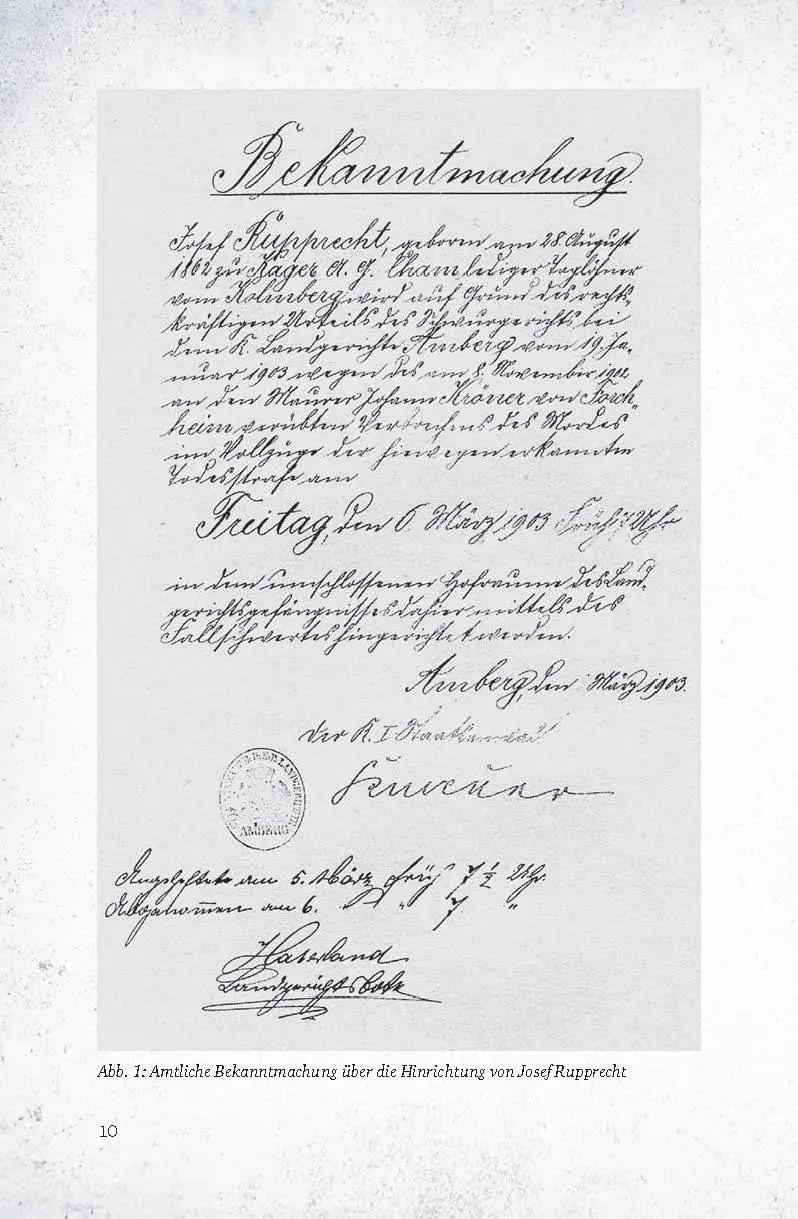 Bekanntmachung.
Josef Rupprecht, geboren am 28. August
1862 zu Kager A. G. Cham lediger Taglöhner
vom Kolmberg wird auf Grund des rechts„
kräftigen Urteils des Schwurgerichts bei
dem K. Landgerichte Amberg vom 19. Ja„
nuar 1903 wegen des am 8. November 1902
an den Maurer Johann Kröner von Forch„
heim verübten Verbrechens des Mordes
im Vollzuge der hiewegen erkannten
Todesstrafe am
Freitag, den 6. März 1903 Früh 7 Uhr
in dem umschlossenen Hofraume des Land„
gerichtsgefängnisses dahier mittels des
Fallschwertes hingerichtet werden.
Amberg, den März 1903.
Der K. I Staatsanwalt
AMBERG
Angeheftet am 5. März früh 7 1/2 Uhr.
Abgenommen am 6. " " 7 "
Haberland
Landgerichtsbote
Abb. 1: Amtliche Bekanntmachung über die Hinrichtung von Josef Rupprecht
10